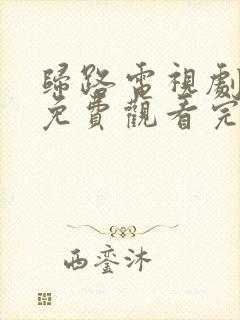 歸路電視劇
免費觀看完
西鸾沐